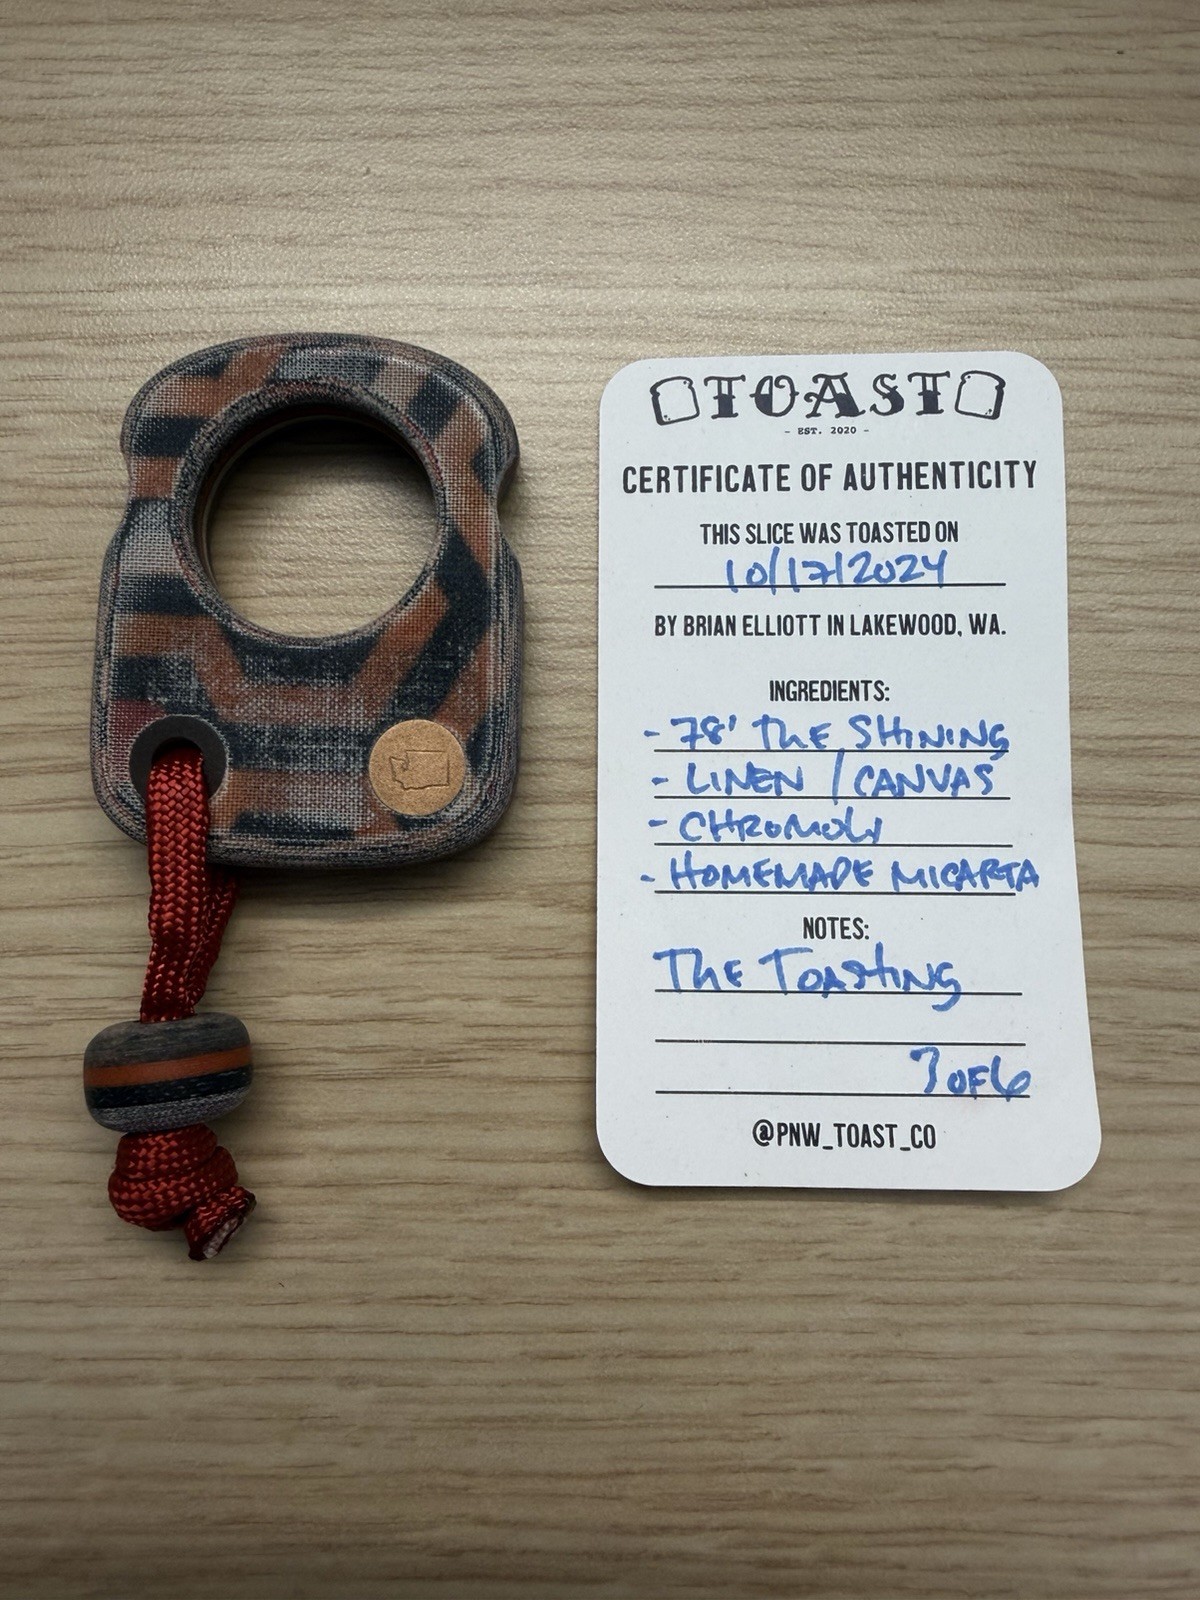 TOAST
- EST. 2020 -
CERTIFICATE OF AUTHENTICITY
THIS SLICE WAS TOASTED ON
10/17/2024
BY BRIAN ELLIOTT IN LAKEWOOD, WA.
INGREDIENTS:
- 78' THE SHINING
- LINEN / CANVAS
- CHROMOLY
- HOMEMADE MICARTA
NOTES:
THE TOASTING
7 OF 6
@PNW_TOAST_CO